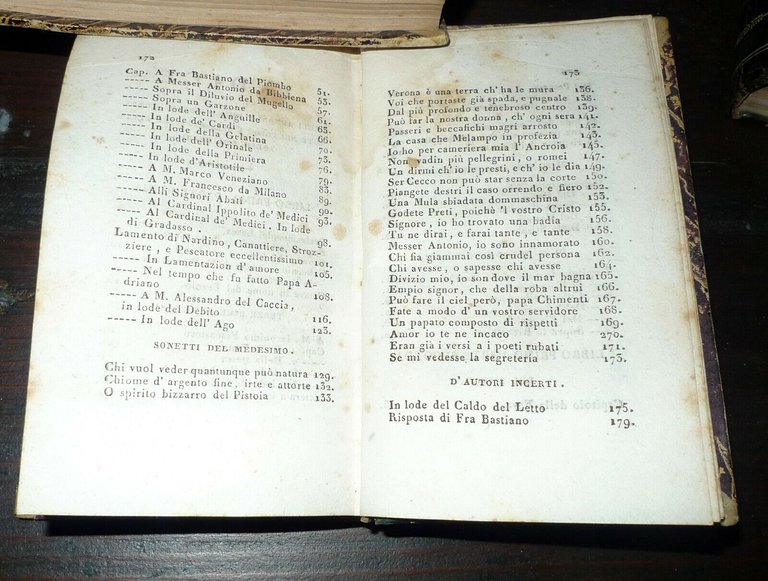 172
Cap. A Fra Bastiano del Piombo 51.
----- A Messer Antonio da Bibbiena 53.
----- Sopra il Diluvio del Mugello 57.
----- Sopra un Garzone 61.
----- In lode dell' Anguille 63.
----- In lode de' Cardi 66.
----- In lode della Gelatina 70.
----- In lode dell' Orinale 73.
----- In lode della Primiera 76.
----- In lode d'Aristotile 79.
----- A M. Marco Veneziano 83.
----- A M. Francesco da Milano 89.
----- Alli Signori Abati 90.
----- Al Cardinal Ippolito de' Medici 93.
----- Al Cardinal de' Medici. In lode
di Gradasso. 98.
Lamento di Nardino, Canattiere, Stroz-
ziere, e Pescatore eccellentissimo 101.
----- In Lamentazion d'amore 105.
----- Nel tempo che fu fatto Papa A-
driano 108.
----- A M. Alessandro del Caccia,
in lode del Debito 116.
----- In lode dell' Ago 123.
SONETTI DEL MEDESIMO.
Chi vuol veder quantunque può natura 129.
Chiome d' argento fine, irte e attorte 132.
O spirito bizzarro del Pistoia 133.
173
Verona è una terra ch' ha le mura 136.
Voi che portaste già spada, e pugnale 138.
Dal più profondo e tenebroso centro 139.
Può far la nostra donna, ch' ogni sera 141.
Passeri e beccafichi magri arrosto 142.
La casa che Melampo in profezia 143.
Io ho per cameriera mia l' Ancroia 145.
Non vadin più pellegrini, o romei 147.
Un dirmi ch' io le presti, e ch' io le dia 149.
Ser Cecco non può star senza la corte 150.
Piangete destri il caso orrendo e fiero 152.
Una Mula sbiadata dommaschina 153.
Godete Preti, poichè 'l vostro Cristo 155.
Signore, io ho trovato una badia 156.
Tu ne dirai, e farai tante, e tante 158.
Messer Antonio, io sono innamorato 160.
Chi fia giammai così crudel persona 162.
Chi avesse, o sapesse chi avesse 164.
Divizio mio, io son dove il mar bagna 165.
Empio signor, che della roba altrui 166.
Può fare il ciel però, papa Chimenti 167.
Fate a modo d' un vostro servidore 168.
Un papato composto di rispetti 169.
Amor io te ne incaco 270.
Eran già i versi a i poeti rubati 171.
Se mi vedesse la segreteria 173.
D' AUTORI INCERTI.
In lode del Caldo del Letto 175.
Risposta di Fra Bastiano 179.